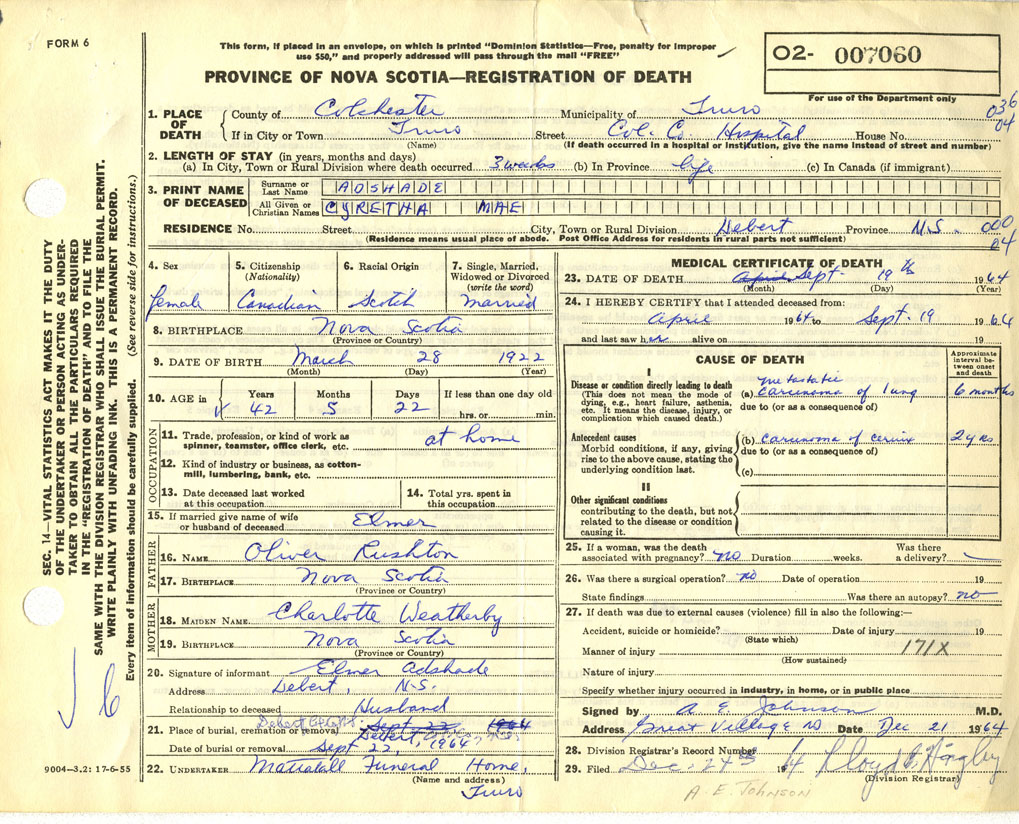 FORM 6
This form, if placed in an envelope, on which is printed "Dominion Statistics—Free, penalty for improper
use $50," and properly addressed will pass through the mail "FREE"
O2- 007060
For use of the Department only
PROVINCE OF NOVA SCOTIA—REGISTRATION OF DEATH
1. PLACE OF DEATH County of Colchester Municipality of Truro 036
If in City or Town Truro Street Col. Co. Hospital House No. 04
(Name) (If death occurred in a hospital or institution, give the name instead of street and number)
2. LENGTH OF STAY (in years, months and days)
(a) In City, Town or Rural Division where death occurred 3 weeks (b) In Province life (c) In Canada (if immigrant)
3. PRINT NAME OF DECEASED Surname or Last Name ADSHADE
All Given or Christian Names CYRETHA MAE
RESIDENCE No. Street City, Town or Rural Division Debert Province N.S. 000
(Residence means usual place of abode. Post Office Address for residents in rural parts not sufficient) 04
4. Sex female
5. Citizenship (Nationality) Canadian
6. Racial Origin Scotch
7. Single, Married, Widowed or Divorced (write the word) Married
8. BIRTHPLACE Nova Scotia
(Province or Country)
9. DATE OF BIRTH March 28 1922
(Month) (Day) (Year)
10. AGE in Years Months Days If less than one day old
42 5 22 hrs. or min.
OCCUPATION
11. Trade, profession, or kind of work as spinner, teamster, office clerk, etc. at home
12. Kind of industry or business, as cotton-mill, lumbering, bank, etc.
13. Date deceased last worked at this occupation
14. Total yrs. spent in this occupation
15. If married give name of wife or husband of deceased Elmer
FATHER
16. NAME Oliver Rushton
17. BIRTHPLACE Nova Scotia
(Province or Country)
MOTHER
18. MAIDEN NAME Charlotte Weatherby
19. BIRTHPLACE Nova Scotia
(Province or Country)
20. Signature of informant Elmer Adshade
Address Debert, N.S.
Relationship to deceased Husband
21. Place of burial, cremation or removal Debert Sept 22 1964
Debert,
Date of burial or removal Sept 22, 1964
22. UNDERTAKER Mattatall Funeral Home,
(Name and address)
Truro
MEDICAL CERTIFICATE OF DEATH
23. DATE OF DEATH April Sept. 19th 1964
(Month) (Day) (Year)
24. I HEREBY CERTIFY that I attended deceased from:
April 1964 to Sept. 19 1964
and last saw her alive on 19
CAUSE OF DEATH
Approximate interval between onset and death
I
Disease or condition directly leading to death
(This does not mean the mode of dying, e.g., heart failure, asthenia, etc. It means the disease, injury, or complication which caused death.)
metastatic
(a) carcinoma of lung 6 months
due to (or as a consequence of)
Antecedent causes
Morbid conditions, if any, giving rise to the above cause, stating the underlying condition last.
(b) carcinoma of cervix 2 yrs
due to (or as a consequence of)
(c)
II
Other significant conditions
contributing to the death, but not related to the disease or condition causing it.
25. If a woman, was the death associated with pregnancy? no Duration weeks. Was there a delivery?
26. Was there a surgical operation? no Date of operation 19
State findings Was there an autopsy? no
27. If death was due to external causes (violence) fill in also the following:—
Accident, suicide or homicide? Date of injury 19
(State which)
Manner of injury 171X
(How sustained)
Nature of injury
Specify whether injury occurred in industry, in home, or in public place
Signed by A. E. Johnson M.D.
Address Great Village NS Date Dec 21 1964
28. Division Registrar's Record Number
29. Filed Dec. 24th 1964
(Division Registrar)
A. E. JOHNSON
SEC. 14—VITAL STATISTICS ACT MAKES IT THE DUTY
OF THE UNDERTAKER OR PERSON ACTING AS UNDER-
TAKER TO OBTAIN ALL THE PARTICULARS REQUIRED
IN THE "REGISTRATION OF DEATH" AND TO FILE THE
SAME WITH THE DIVISION REGISTRAR WHO SHALL ISSUE THE BURIAL PERMIT.
WRITE PLAINLY WITH UNFADING INK. THIS IS A PERMANENT RECORD.
Every item of information should be carefully supplied. (See reverse side for instructions.)
6
9004—3.2: 17-6-55